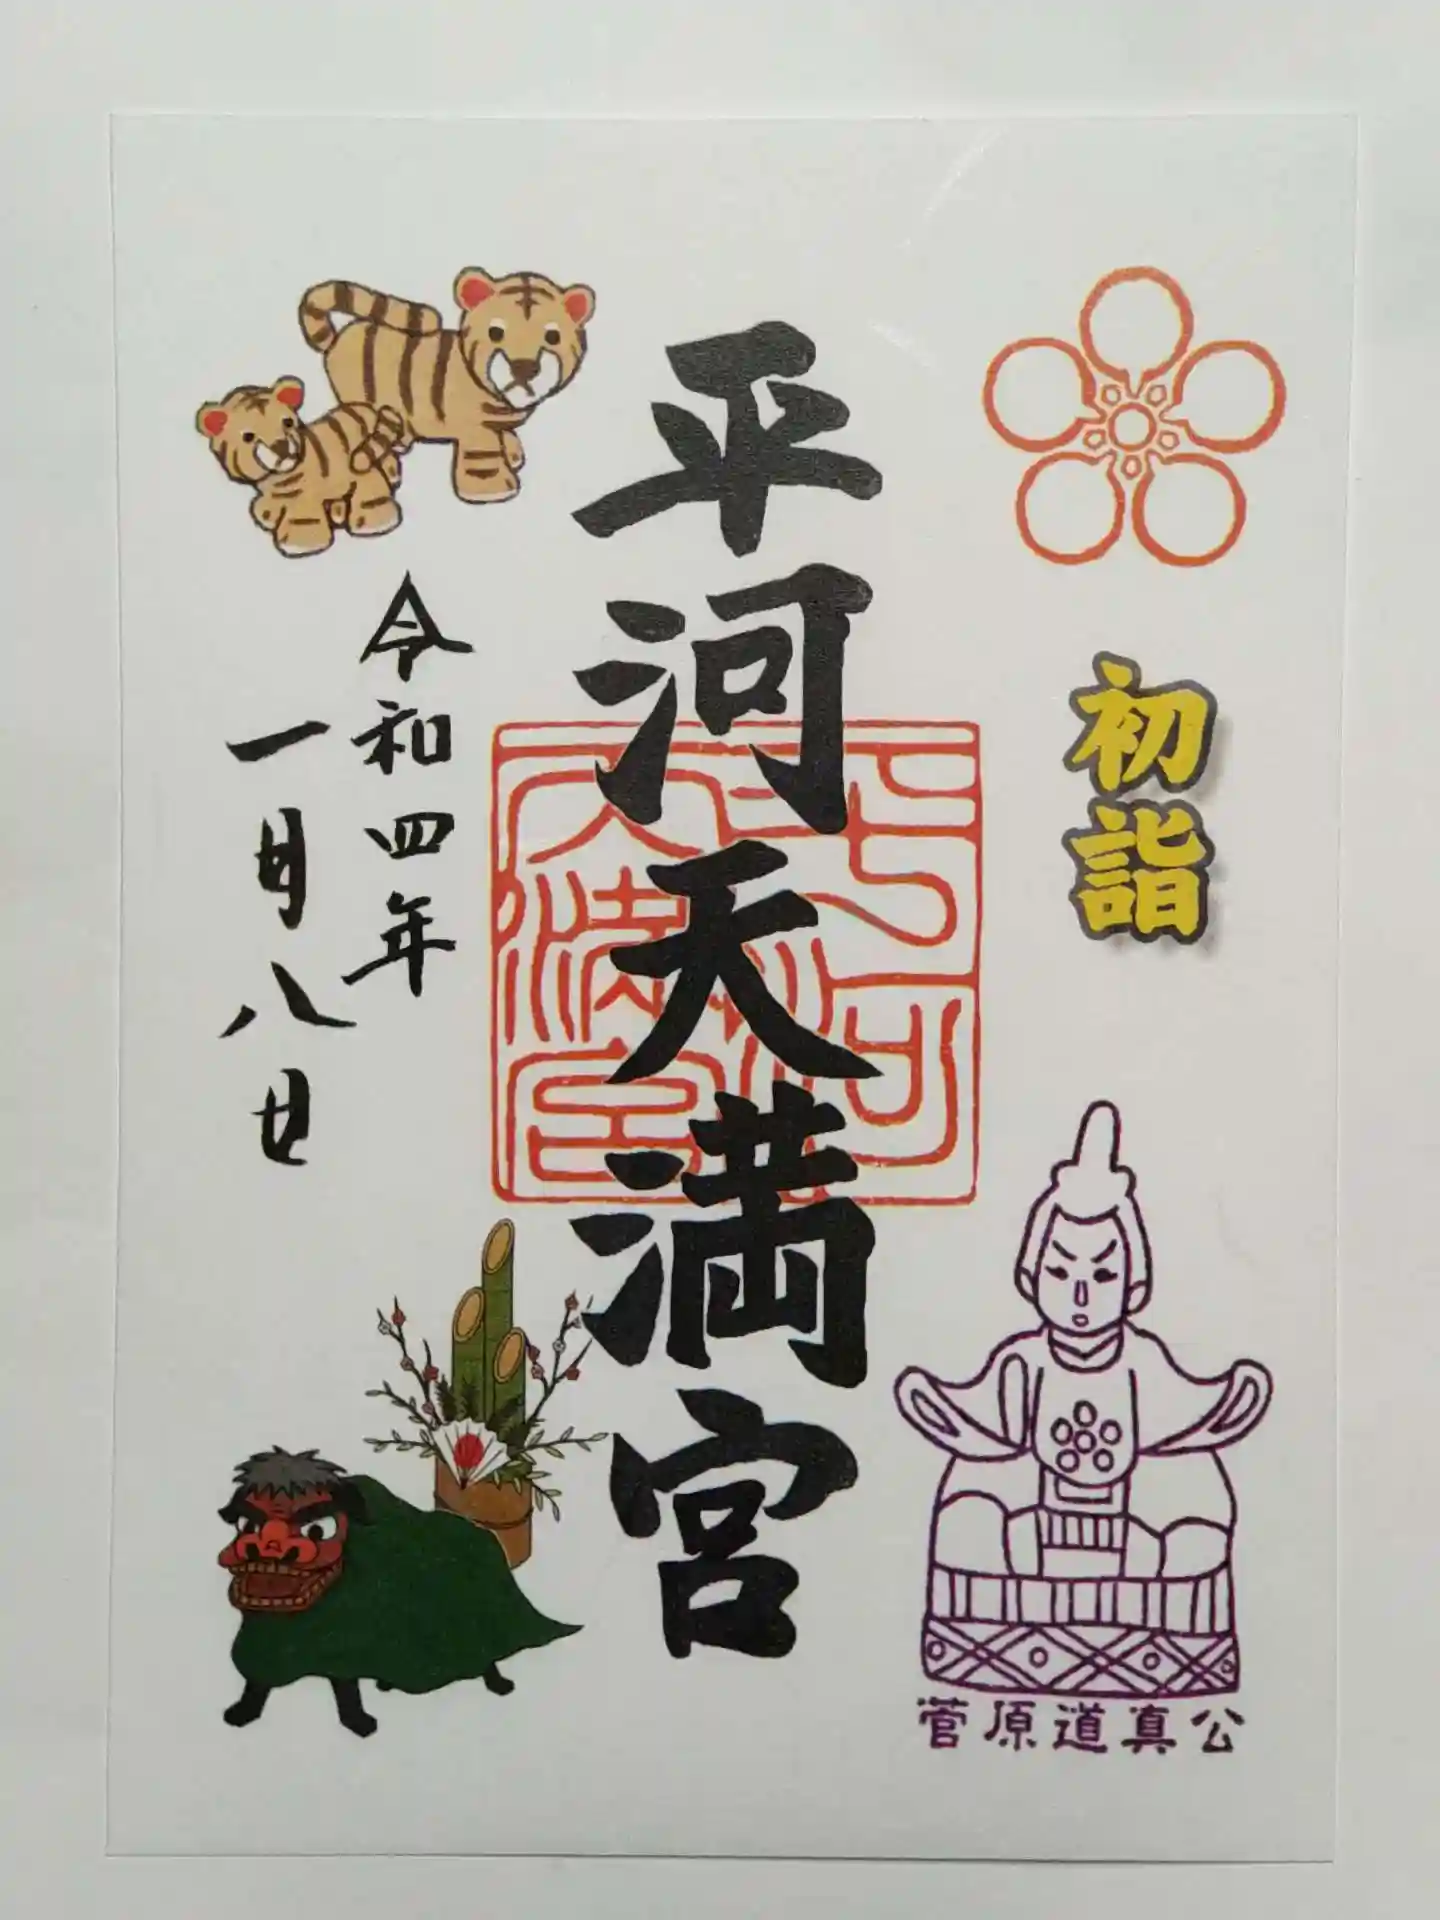 初詣
平河天満宮
平河
天満宮
令和四年
一月八日
菅原道真公